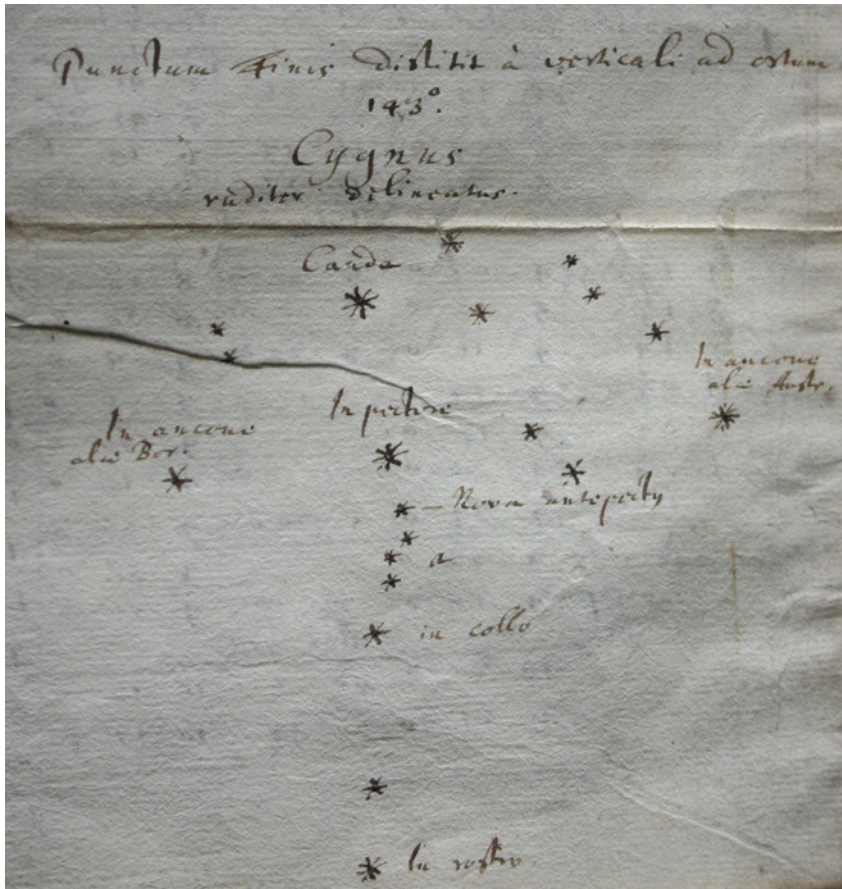 Punctum Finis distitit à verticali ad ortum
143°.
Cygnus
ruditer delineatus.
Cauda
In ancone
alæ Austr.
In pectore
In ancone
alæ Bor.
Nova
a
in collo
In rostro.